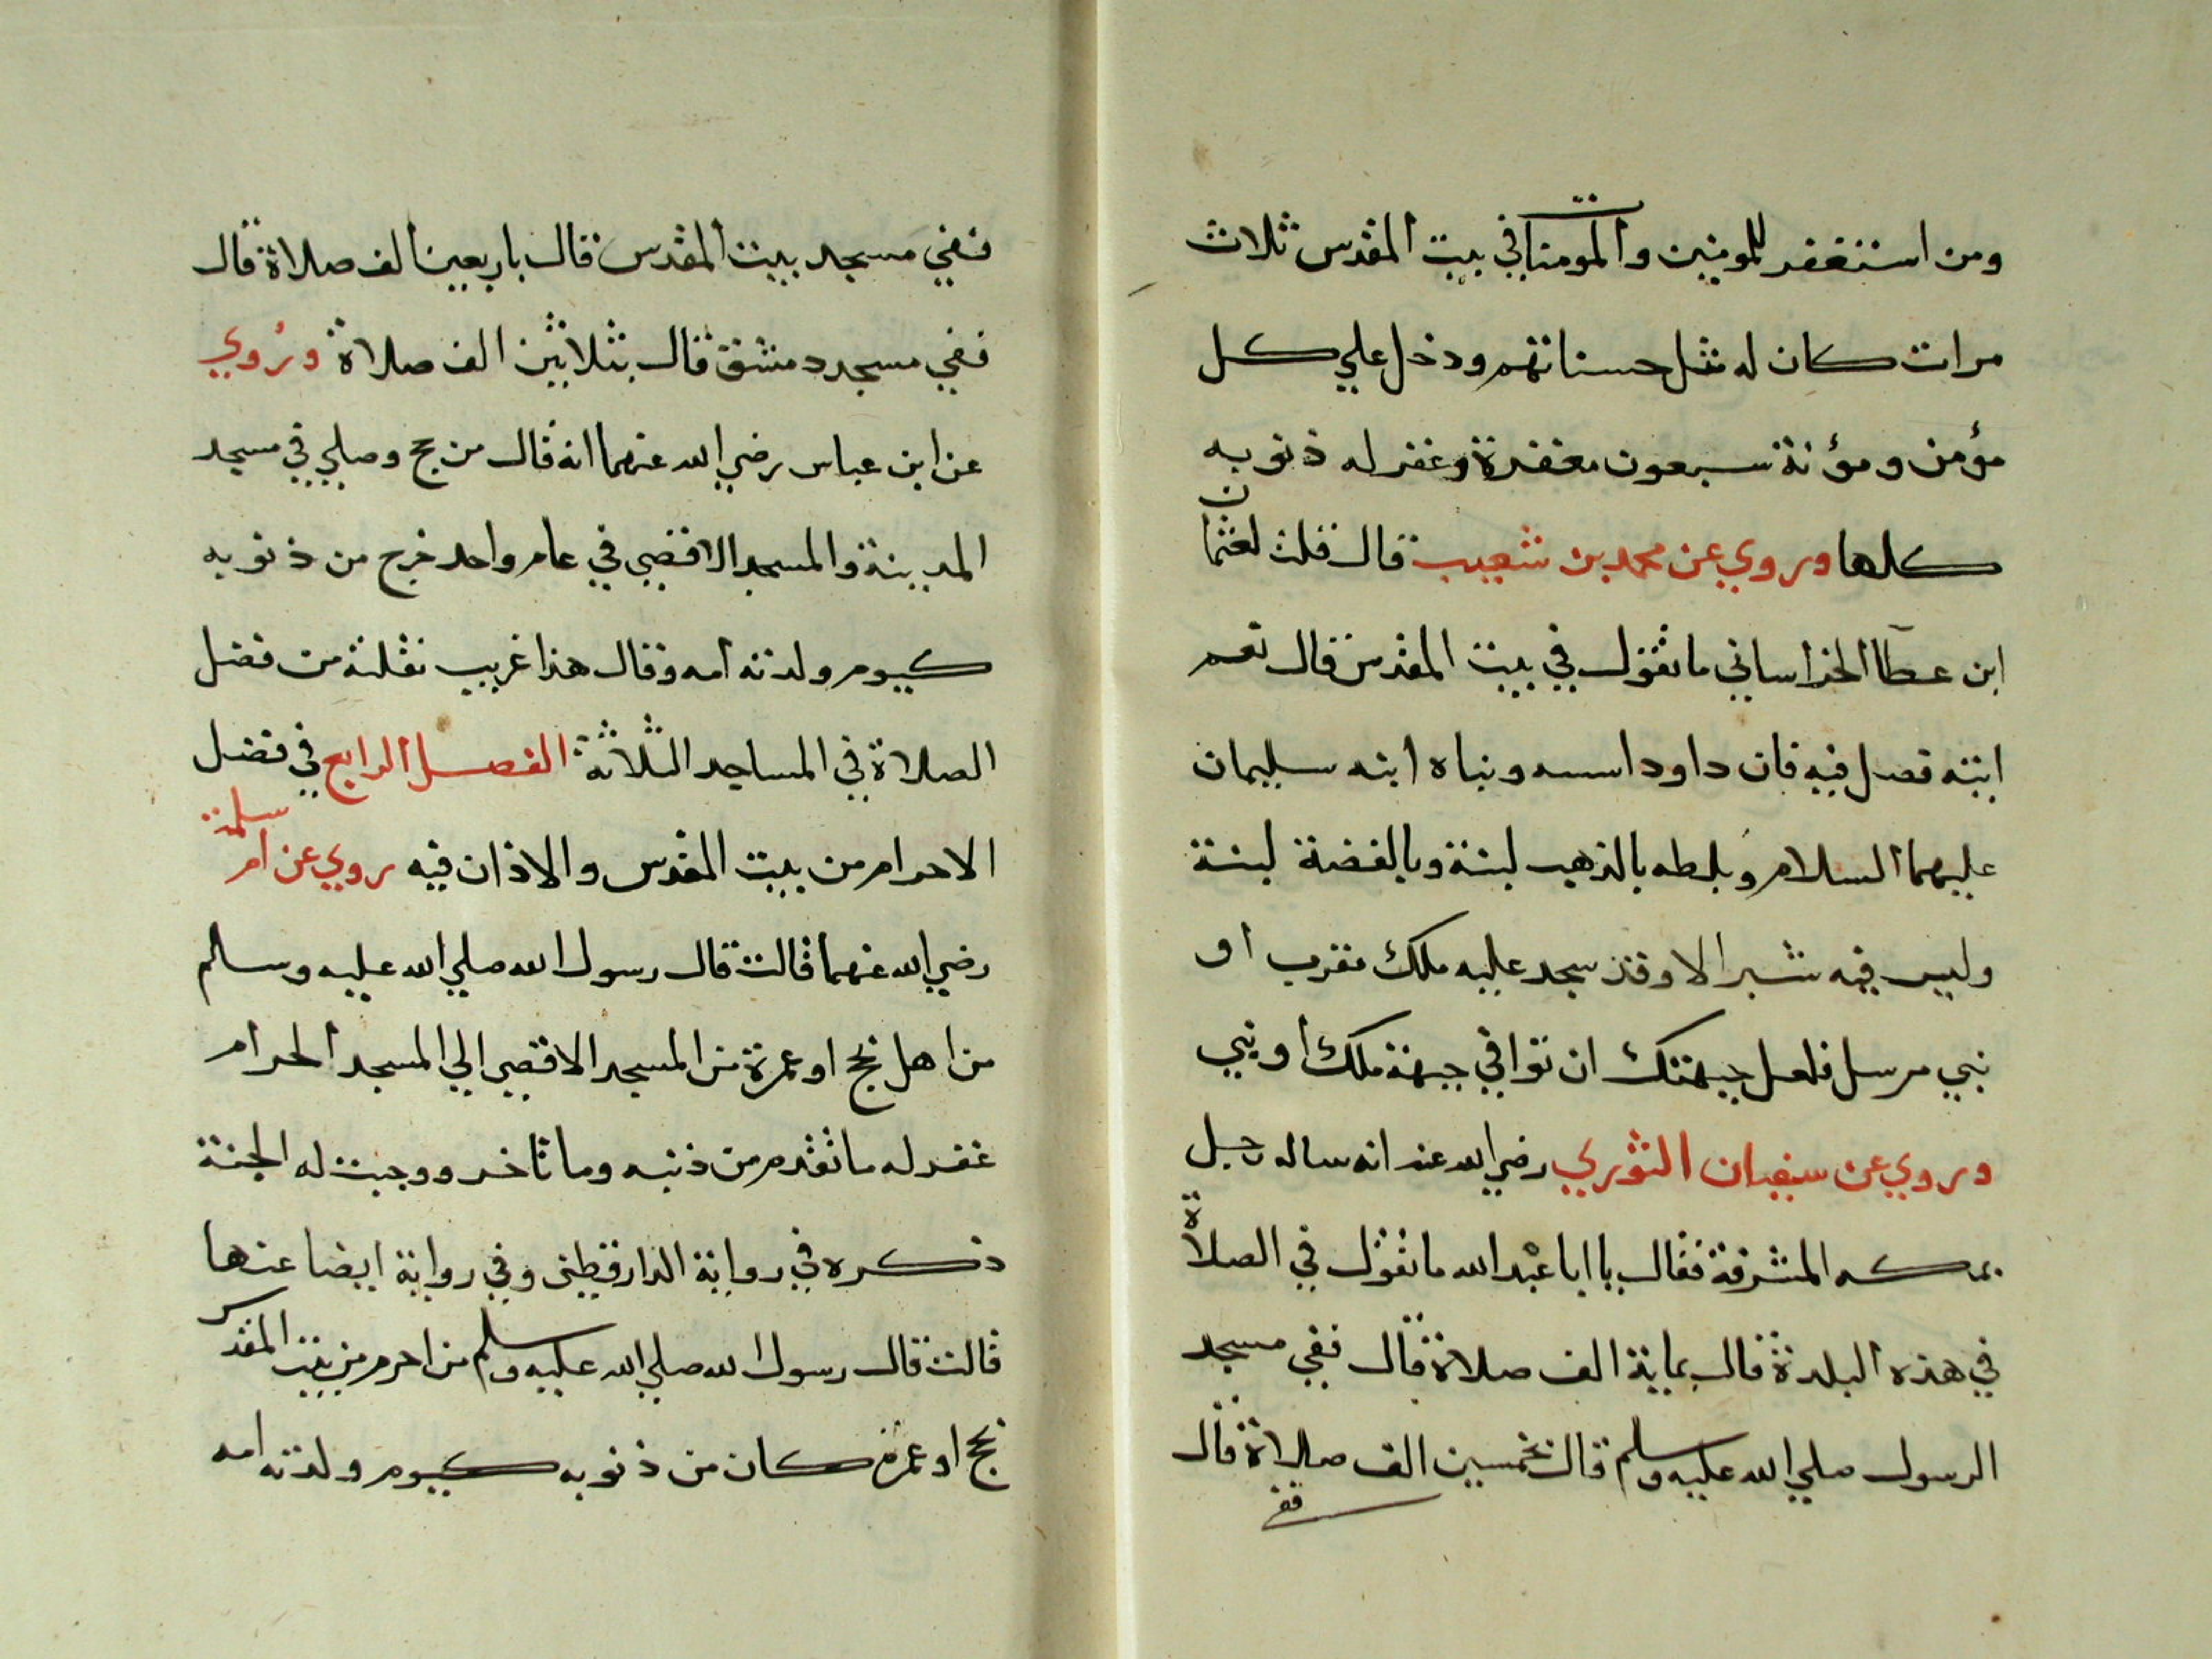 ومن استغفر للمومنين والمومنات في بيت المقدس ثلاث
مرات كان له مثل حسناتهم ودخل علي كل
مؤمن ومؤنة سبعون مغفرة وغفر له ذنوبه
كلها وروي عن محمد بن شعيب قال قلت لعثمان
ابن عطآ الخراساني ما تقول في بيت المقدس قال نعم
ابنته فصل فيه فان داود اسسه وبناه ابنه سليمان
عليهما السلام وبلطه بالذهب لبنة وبالفضة لبنة
وليس فيه شبر الا وقد سجد عليه ملك مقرب او
نبي مرسل فلعل جبهتك ان توافي جبهة ملك او نبي
وروي عن سفيان الثوري رضي الله عنه انه ساله رجل
بمكه المشرفة فقال يا ابا عبد الله ما تقول في الصلاة
في هذه البلدة قال بماية الف صلاة قال ففي مسجد
الرسول صلي الله عليه وسلم قال بخمسين الف صلاة قال
ففي
ففي مسجد بيت المقدس قال باربعين الف صلاة قال
ففي مسجد دمشق قال بثلاثين الف صلاة وروي
عن ابن عباس رضي الله عنهما انه قال من حج وصلي في مسجد
المدينة والمسجد الاقصي في عام واحد خرج من ذنوبه
كيوم ولدته امه وقال هذا غريب نقلته من فضل
الصلاة في المساجد الثلاثة الفصل الرابع في فضل
الاحرام من بيت المقدس والاذان فيه روي عن ام سلمة
رضي الله عنهما قالت قال رسول الله صلي الله عليه وسلم
من اهل بحج او عمرة من المسجد الاقصي الي المسجد الحرام
غفر له ما تقدم من ذنبه وما تاخر ووجبت له الجنة
ذكره في رواية الدارقطني وفي رواية ايضا عنها
قالت قال رسول الله صلي الله عليه وسلم من احرم من بيت المقدس
بحج او عمرة كان من ذنوبه كيوم ولدته امه